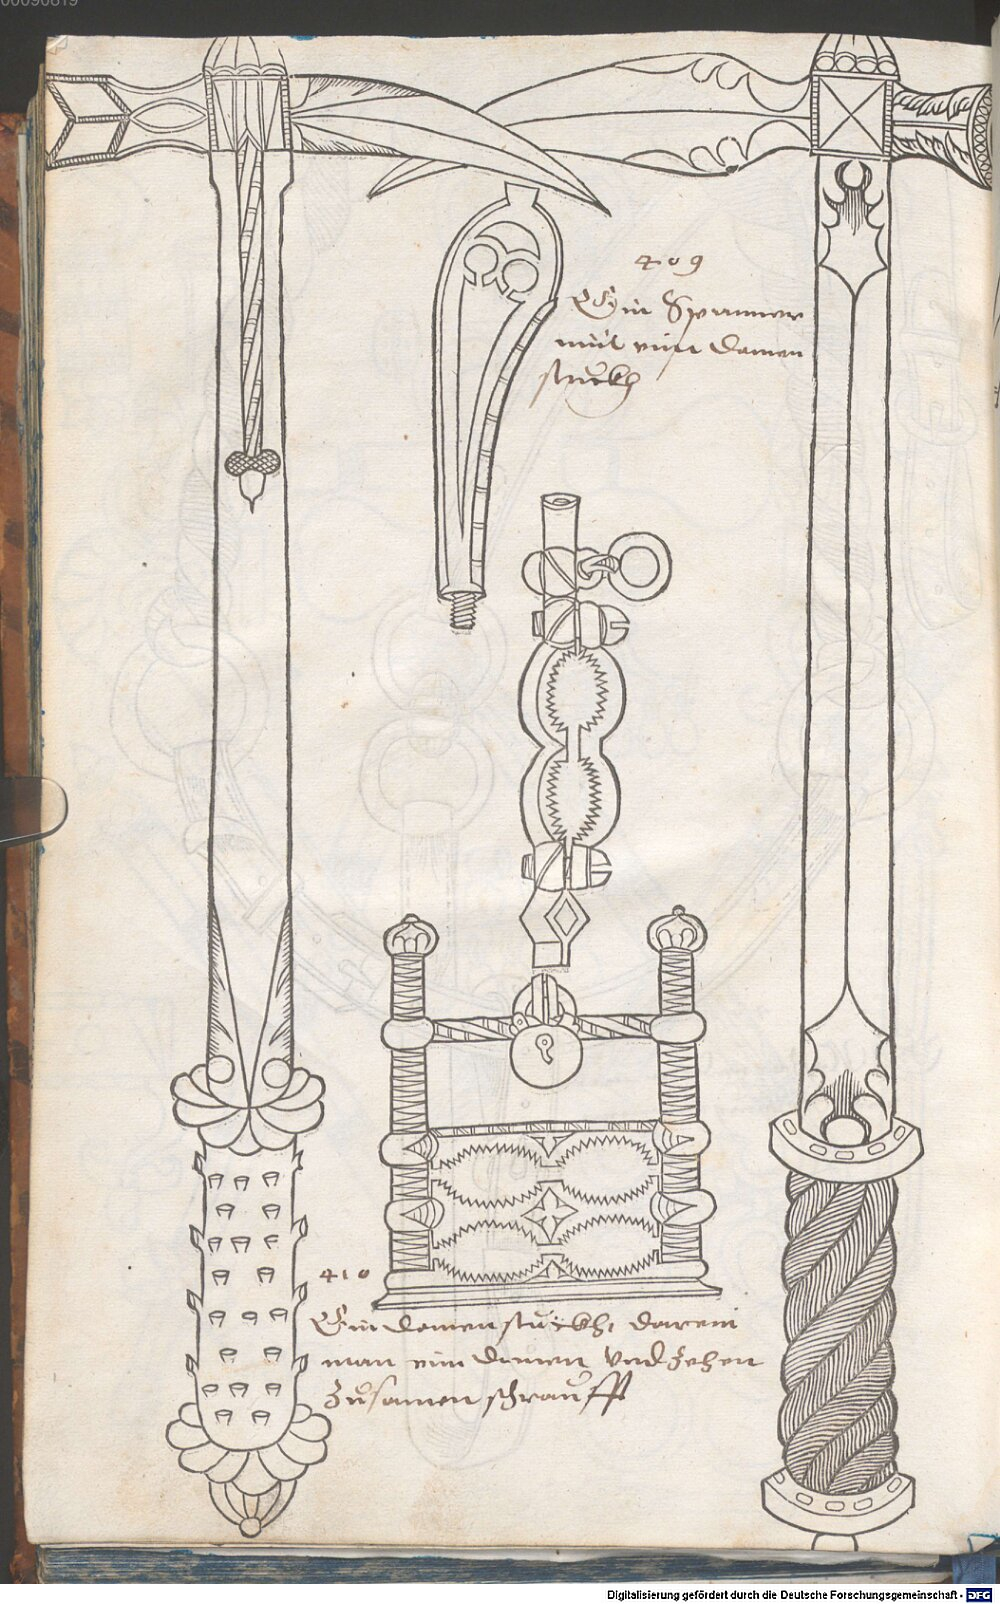 00090819
409
Ein Spanner
mit einn Damen
stuckh
410
Ein damen stuckh, darein
man eim Dimen Vnd Zehen
Zusamen schraufft
Digitalisierung gefördert durch die Deutsche Forschungsgemeinschaft - DFG